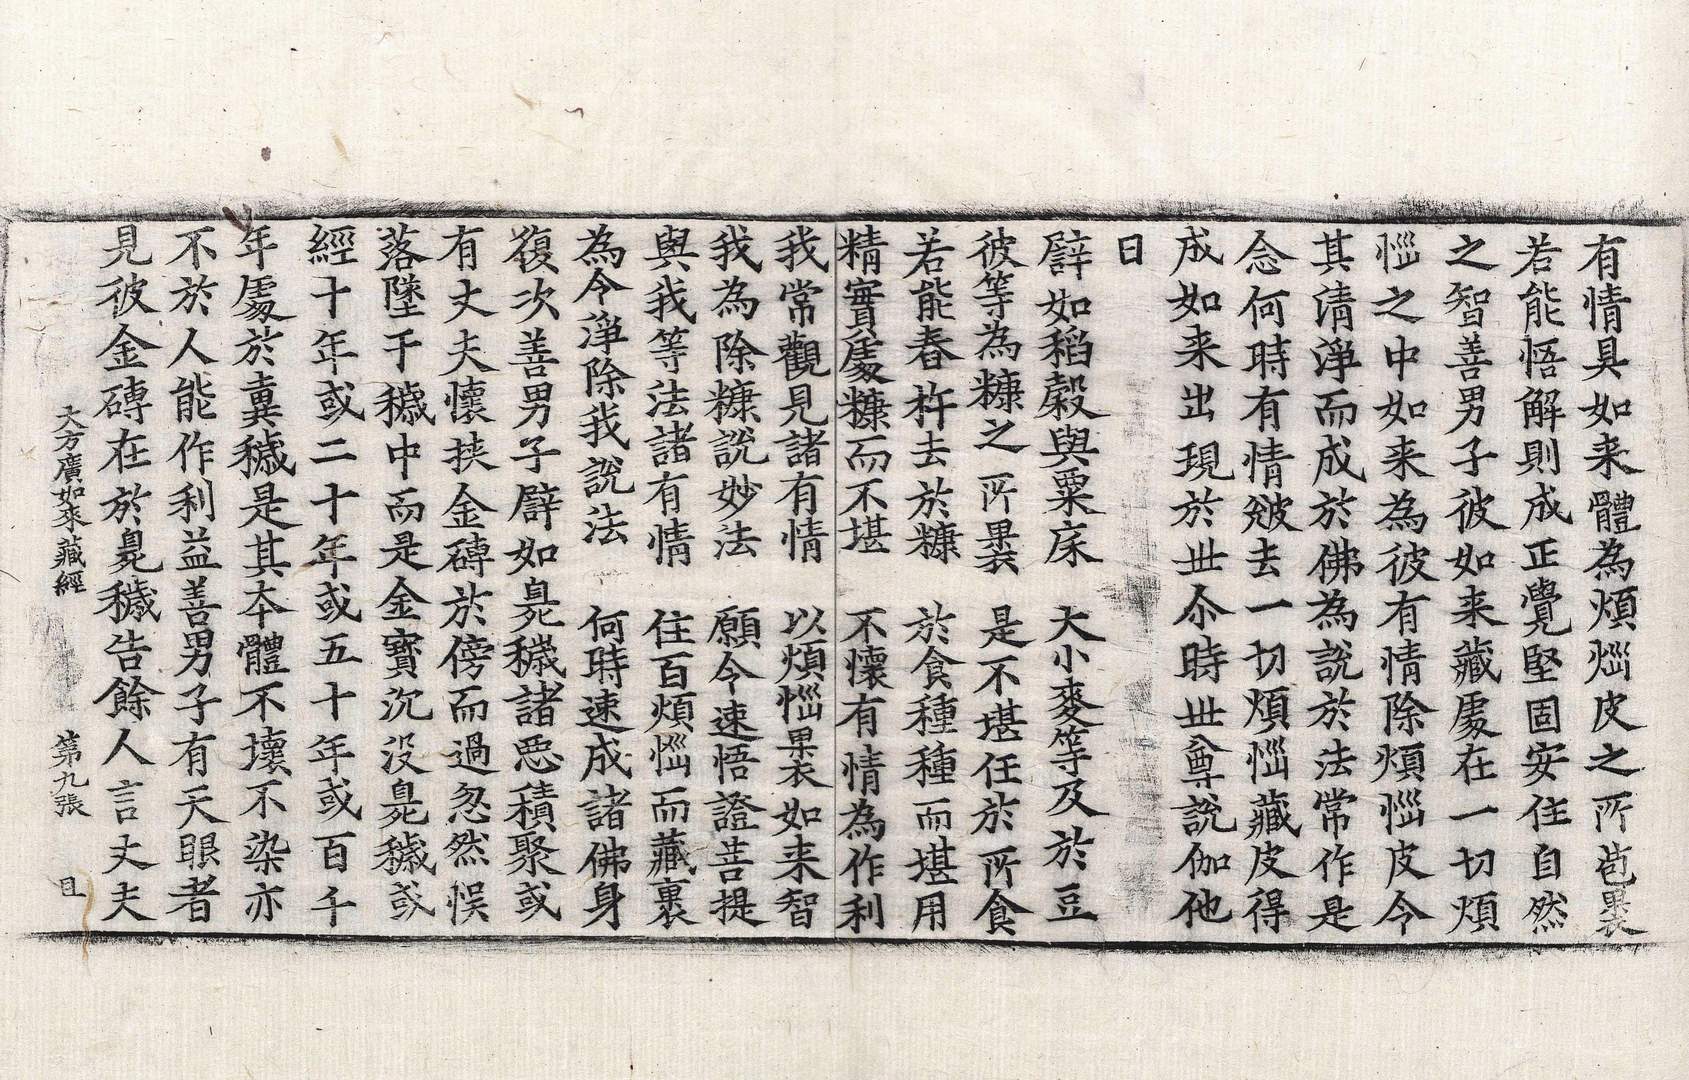 有情具如来體為煩惱皮之所苞裹
若能悟解則成正覺堅固安住自然
之智善男子彼如来藏處在一切煩
惱之中如来為彼有情除煩惱皮令
其清淨而成於佛為說於法常作是
念何時有情皴去一切煩惱藏皮得
成如来出現於世尒時世尊說伽他
曰
譬如稻糓與粟床　大小麥等及於豆
彼等為糠之所裹　是不堪任於所食
若能舂杵去於糠　於食種種而堪用
精實處糠而不堪　不懷有情為作利
我常觀見諸有情　以煩惱裹如来智
我為除糠說妙法　願令速悟證菩提
與我等法諸有情　住百煩惱而藏裹
為令淨除我說法　何時速成諸佛身
復次善男子譬如臰穢諸惡積聚或
有丈夫懷挾金磚於傍而過忽然悮
落墜于穢中而是金寳沉没臰穢或
經十年或二十年或五十年或百千
年處於糞穢是其本體不壞不染亦
不於人能作利益善男子有天眼者
見彼金磚在於臰穢告餘人言丈夫
大方廣如來藏經　第九張　目